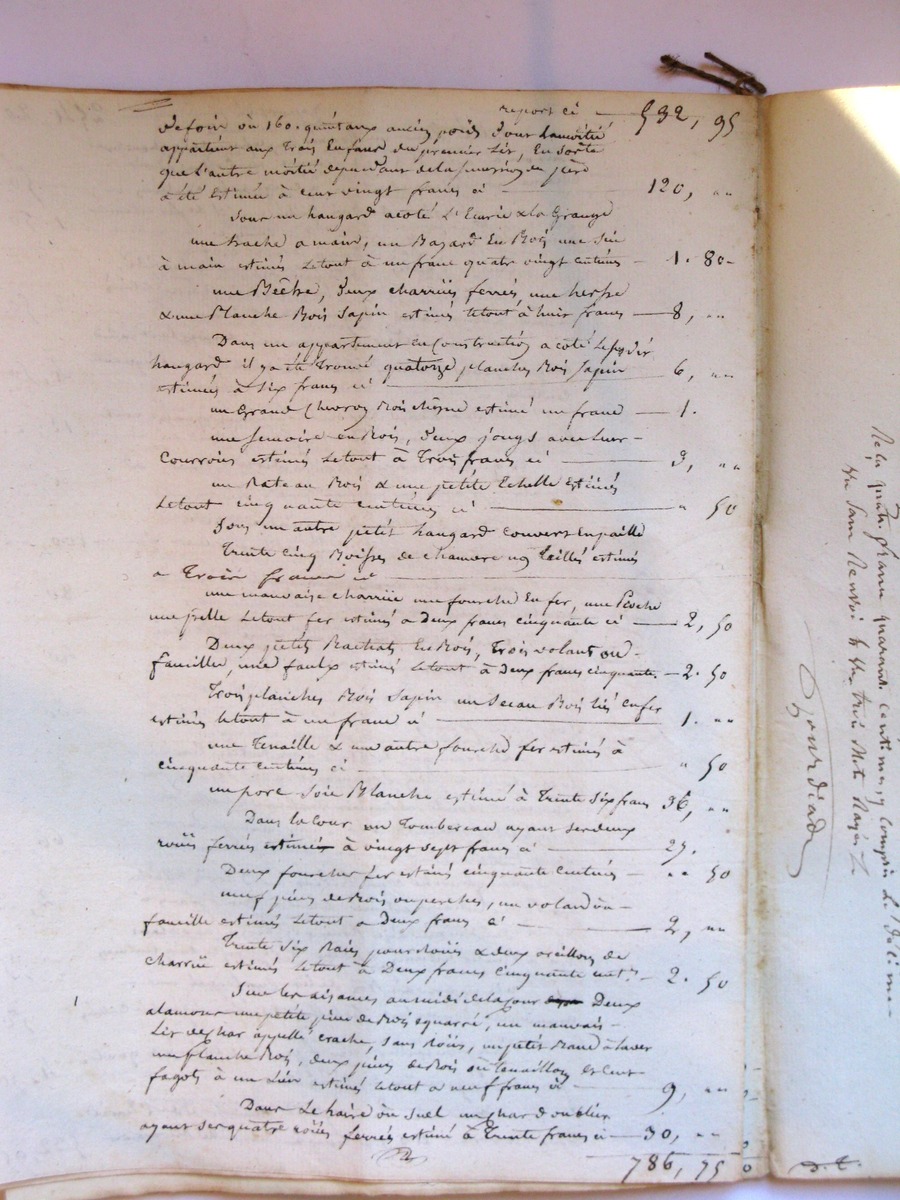 report ci — 532, 95
de foin ou 160. quintaux ancien poids dont la moitié
appartient aux trois Enfans du premier Lit, En sorte
que l'autre moitié dependant de la succession du père
a été estimée à cent vingt francs ci — 120, ..
Sous un hangard a coté L'Ecurie & la Grange
une hache a main, un En Bois une Sie
à main estimés letout à un franc quatre vingt centimes — 1. 80
une Bêche, Deux charrües ferrés, une herse
& une Planche Bois Sapin estimés letout à huit francs — 8, ..
Dans un appartement en Construction a coté le susdit
hangard il y a été trouvé quatorze planches Bois Sapin
estimées à Six francs ci — 6, ..
un Grand Chevron Bois chêsne estimé un franc — 1.
une Semoire en Bois, Deux jougs avec leur
Courroies estimés letout à Trois francs ci — 3, ..
un Rateau Bois & une petite Echelle estimés
letout cinquante centimes ci — .. 50
Sous un autre petit hangard couvert en paille
Trente cinq de chanvre non Taillés estimés
a Trois francs ci —
une mauvaise charrüe une fourche En fer, une Pioche
une pelle letout fer estimés a Deux francs cinquante ci — 2, 50
Deux petits En Bois, Trois volant ou
faucille, une faulx estimés letout à Deux francs cinquante — 2. 50
Trois planches Bois Sapin un Seau Bois lié en fer
estimés letout à un franc ci — 1. ..
une Tenaille & une autre fourche fer estimés à
cinquante centimes ci — .. 50
un porc Soie Blanche estimé à Trente Six francs 36, ..
Dans la Cour un Tombereau ayant ses deux
roües ferrées estimés à vingt sept francs ci — 27.
Deux fourches fer estimés cinquante centimes — .. 50
neuf pieces de Bois ou perches, un volant ou
faucille estimés letout a Deux francs ci — 2, ..
Trente Six Raies pour roües & deux oreillons de
charrüe estimés letout à Deux francs Cinquante cent.s — 2. 50
Sur les aisances au midi de la cour Deux
alamons une petite piece de Bois equarré, un mauvais
Lit de char appellé crache, sans Roües, un petit à laver
une planche Bois, deux pieces de Bois ou tenaillon et cent
fagots à un Lien estimés letout a neuf francs ci — 9, ..
Dans le haire ou Suel un char double
ayant ses quatre roües ferrées estimé à Trente francs ci — 30, ..
786, 75
quarante centimes y compris le Décime
Gourdiad